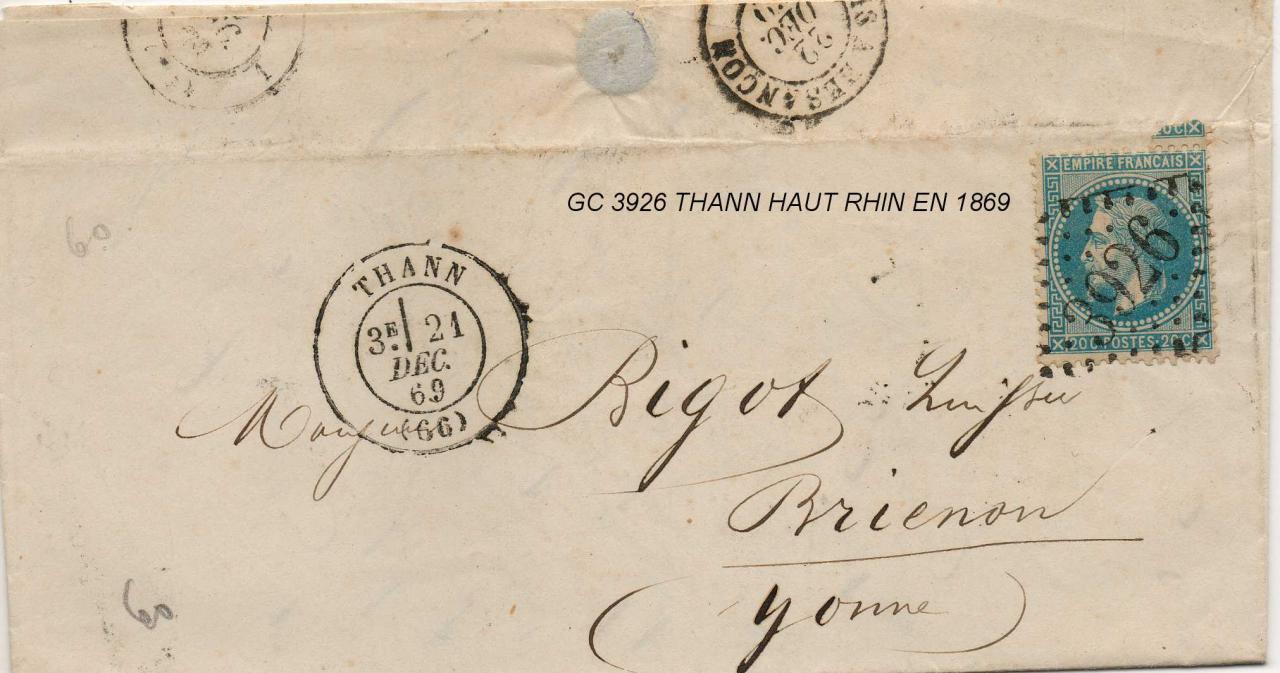 22
DEC.
A BESANÇON
60
GC C
EMPIRE FRANCAIS
3926
20 C POSTES 20 C
GC 3926 THANN HAUT RHIN EN 1869
THANN
3E 21
DEC.
69
(66)
Bigot
Brienon
yonne
60